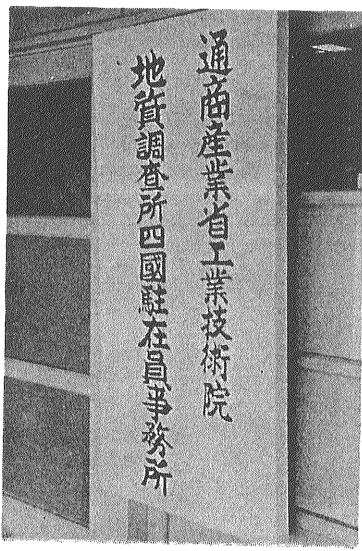 通商産業省工業技術院
地質調査所四國駐在員事務所